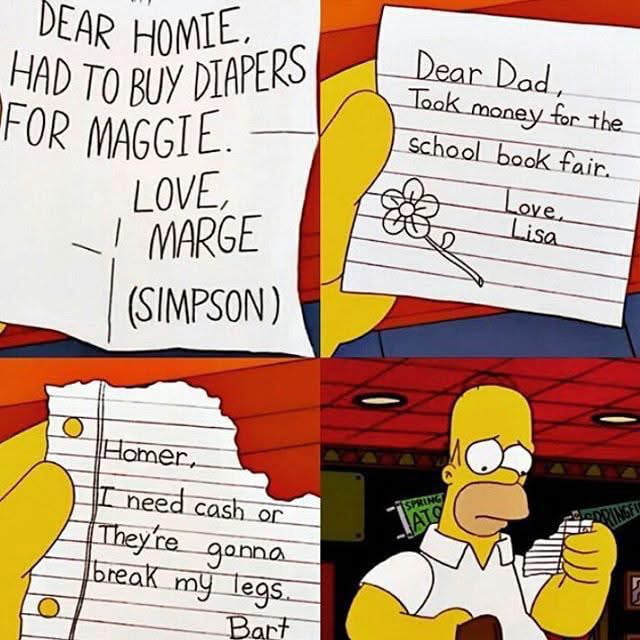 DEAR HOMIE,
HAD TO BUY DIAPERS
FOR MAGGIE.
LOVE,
MARGE
(SIMPSON)
Dear Dad,
Took money for the
school book fair.
Love,
Lisa
Homer,
I need cash or
They're gonna
break my legs.
Bart
SPRING
ATO
SPRINGFI